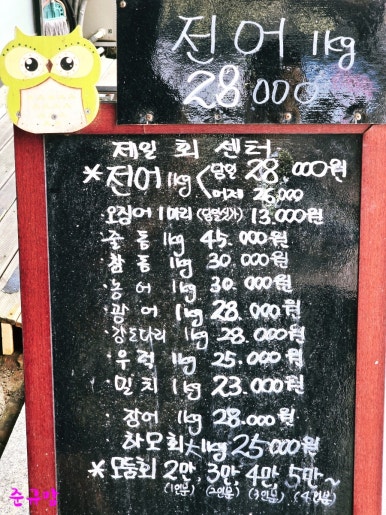 전어 1kg
28000
제일 회 센터
*전어 1kg < 당일 28.000원
어제 26,000
오징어 1마리 (당일시가) 13.000원
·줄 돔 1kg 45.000원
·참 돔 1kg 30.000원
·농 어 1kg 30.000원
·광 어 1kg 28.000원
·강도다리 1kg 28.000원
·우 럭 1kg 25.000원
·밀 치 1kg 23.000원
·장어 1kg 28.000원
·하모회 1kg 25000원
*모둠회 2만, 3만, 4만, 5만~
(1인분) (2인분) (3인분) (4인분)